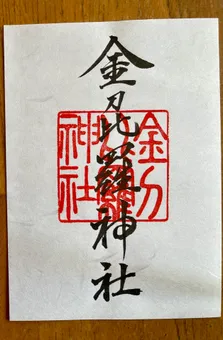 金刀比羅神社
金刀比羅神社